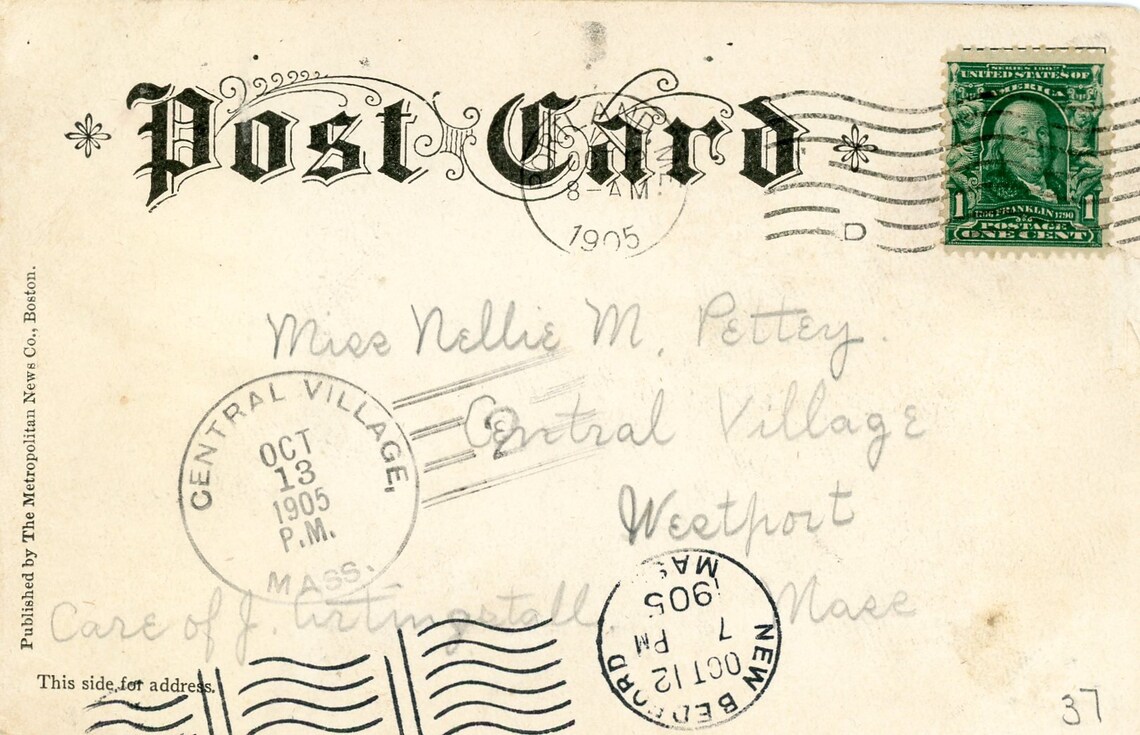 Post Card
AND
8-AM
1905
D
SERIES 1902
UNITED STATES OF
AMERICA
1 1706 FRANKLIN 1790 1
POSTAGE
ONE CENT
Miss Nellie M. Pettey.
Central Village
Westport
Mass
Care of J. Artingstall.
CENTRAL VILLAGE,
OCT
13
1905
P.M.
MASS.
2
NEW BEDFORD
OCT 12
7 PM
1905
MASS
Published by The Metropolitan News Co., Boston.
This side for address.
37